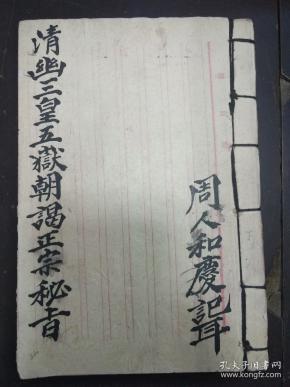 清幽三皇五嶽朝謁正宗秘旨
周人和慶記
孔夫子旧书网